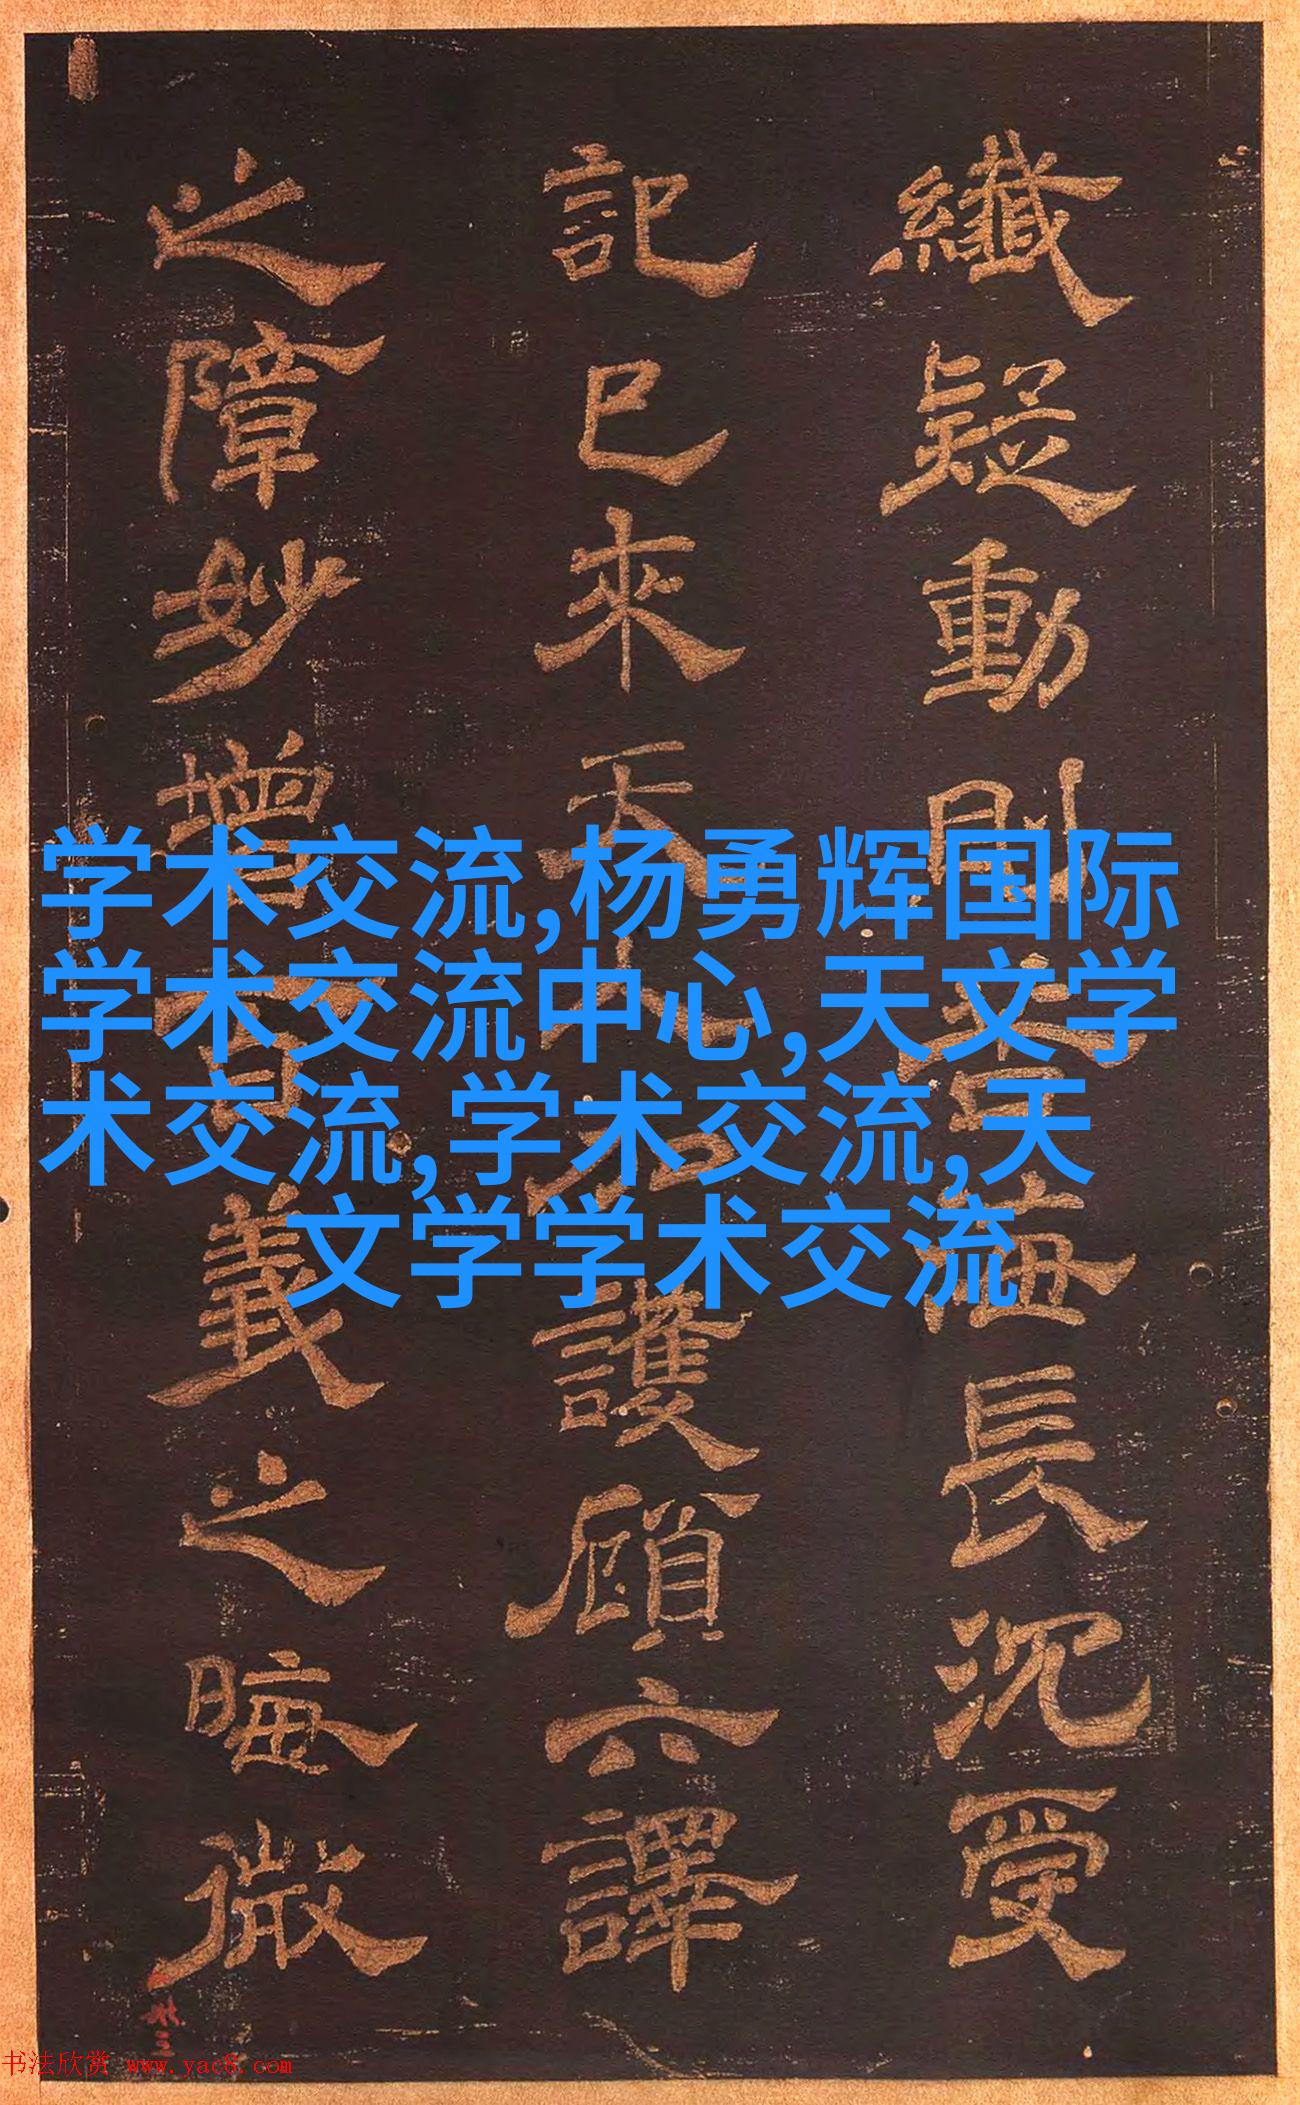 纖疑動則長沉受
記已來天人加護顧六譯
之障妙增百義之晦微
学术交流,杨勇辉国际
学术交流中心,天文学
术交流,学术交流,天
文学学术交流
书法欣赏 www.yac8.com